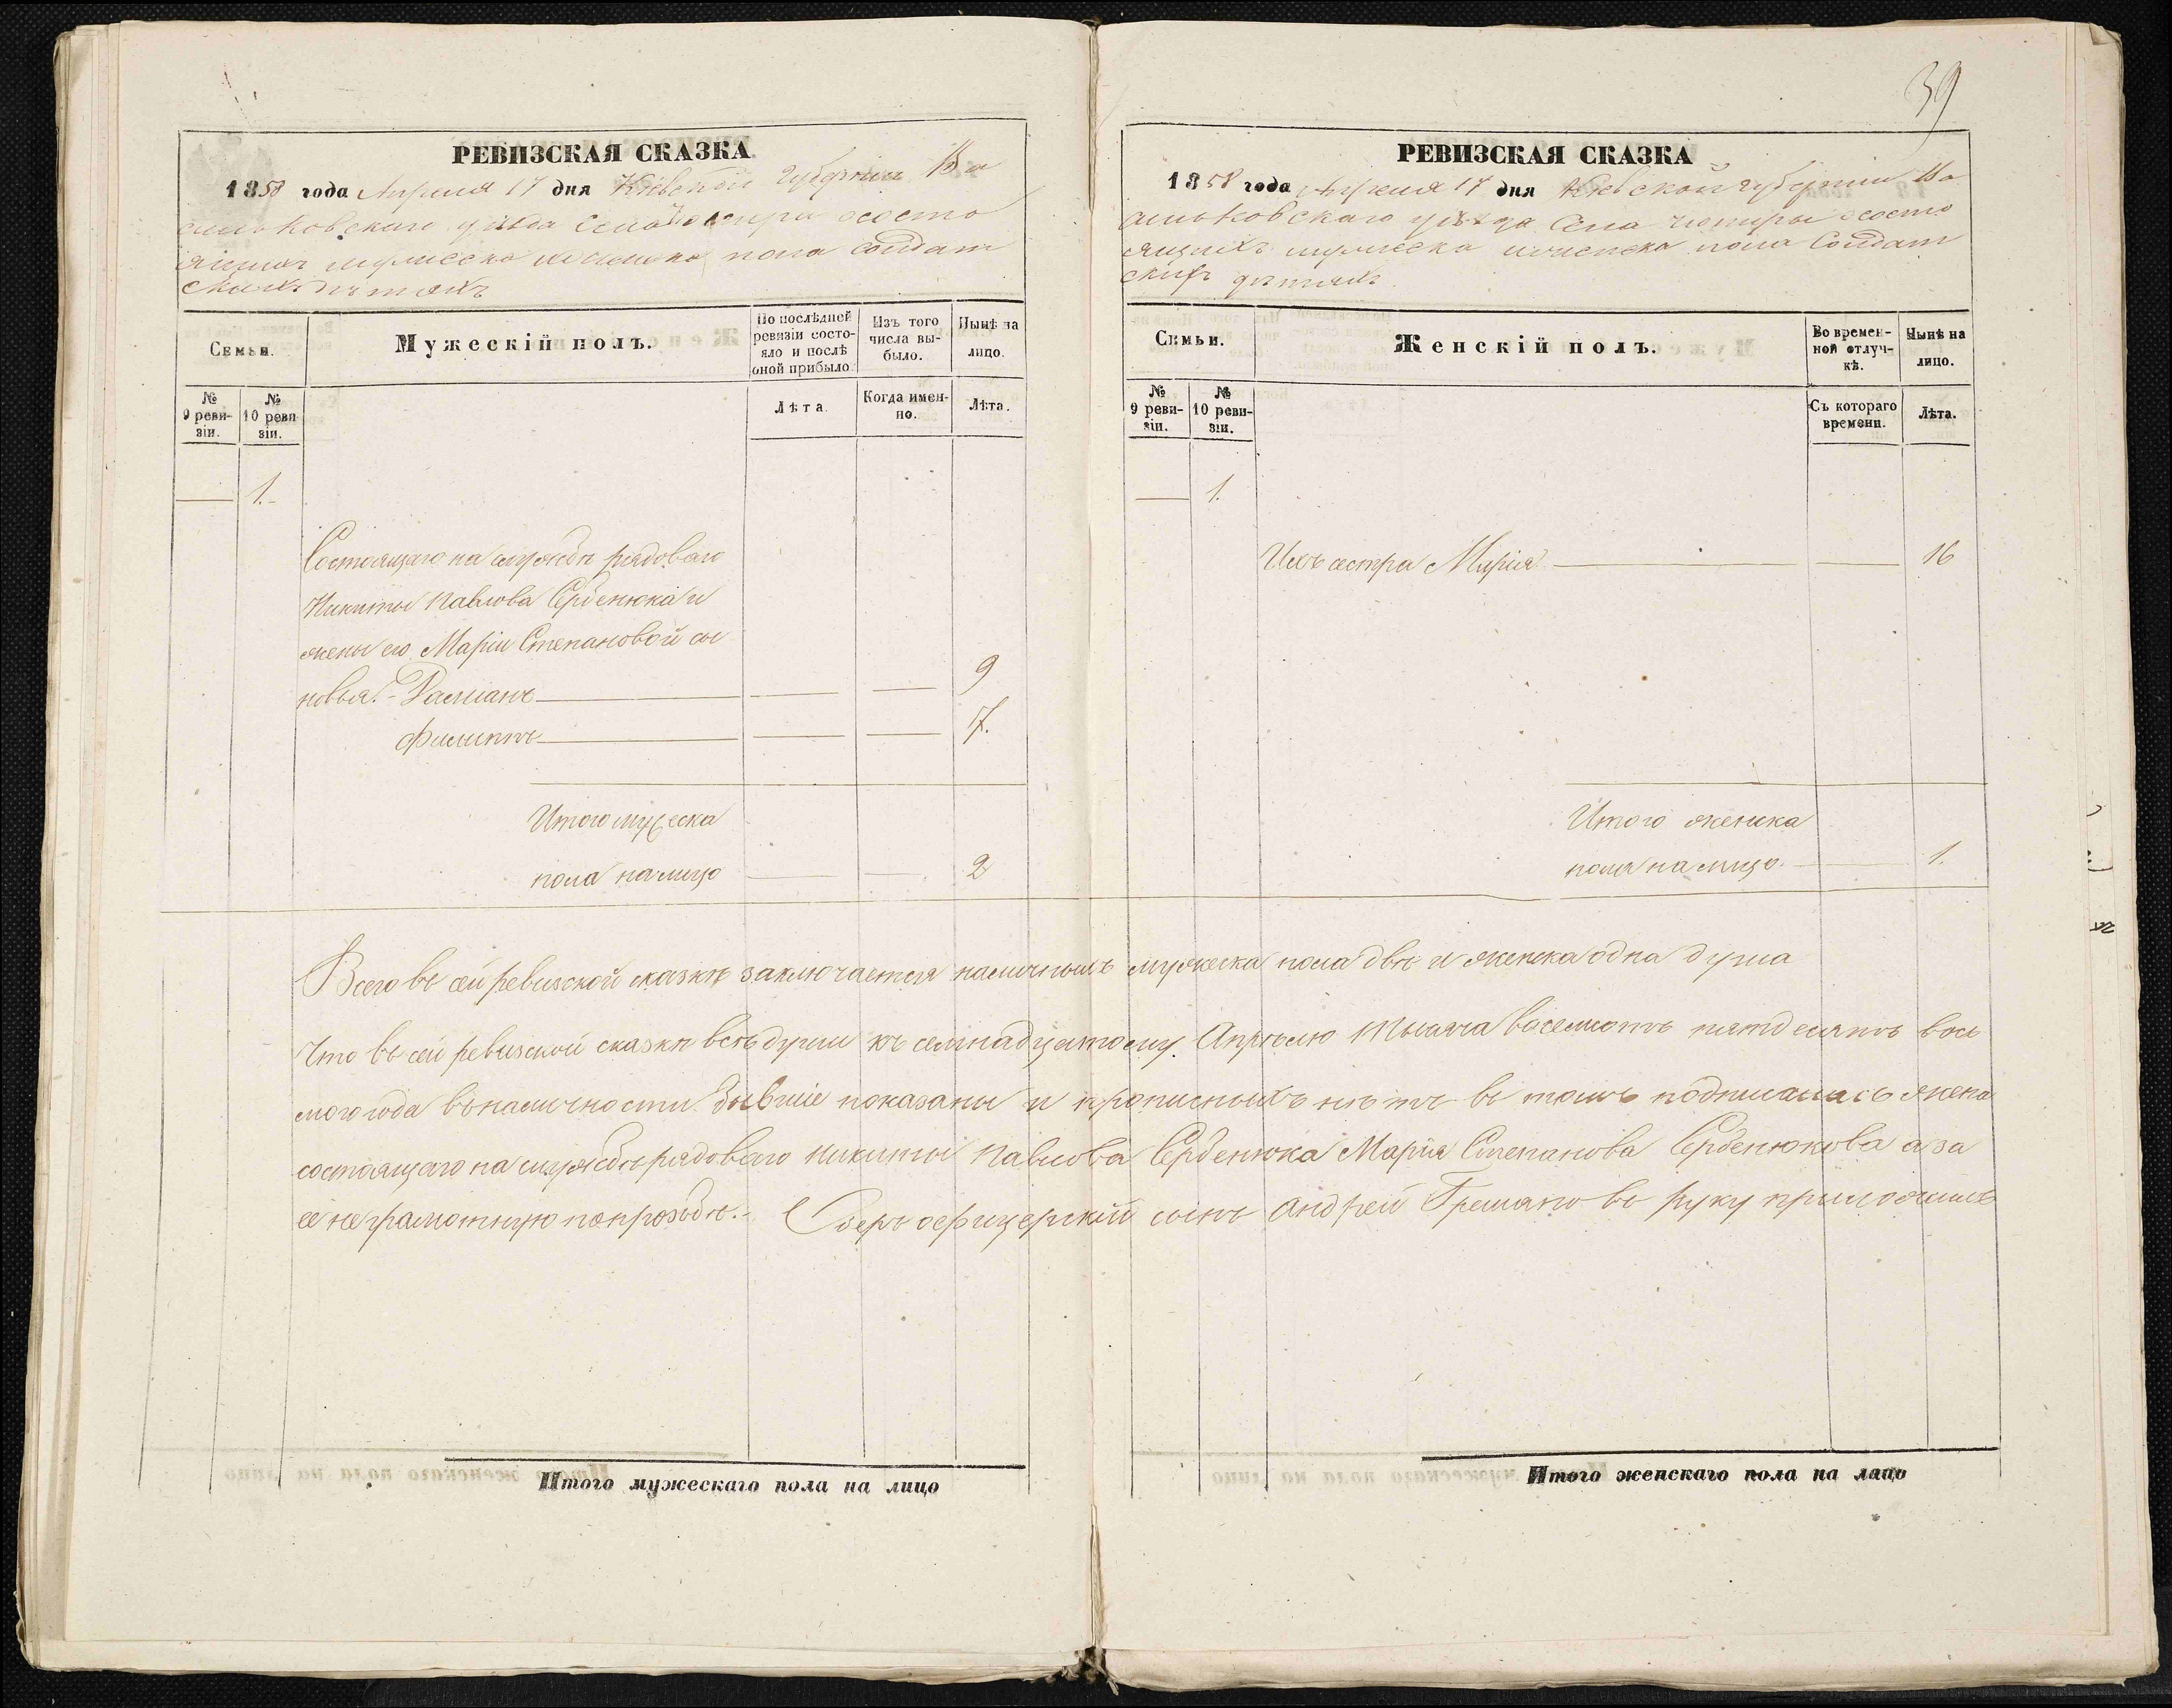 39
РЕВИЗСКАЯ СКАЗКА
1858 года Апреля 17 дня Кіевской Губерніи Ва
сильковскаго уѣзда Села Чепири ососто
ящихъ мужеска иженска пола Солдат
скихъ дѣтяхъ
Семьи.
Мужескій полъ.
По послѣдней ревизіи состояло и послѣ оной прибыло.
Изъ того числа выбыло.
Нынѣ на лицо.
№ 9 ревизіи.
№ 10 ревизіи.
Лѣта.
Когда именно.
Лѣта.
1.
Состоящаго на службѣ рядоваго
Никиты Павлова Сербенюка и
жены его Маріи Степановой сы
новья: Даміанъ 9
Филиппъ 7.
Итого мужеска
пола налицо 2
РЕВИЗСКАЯ СКАЗКА
1858 года Апреля 17 дня Кіевской губерніи Ва
сильковскаго уѣзда Села Чепиры ососто
ящихъ мужеска иженска пола Солдат
скихъ дѣтяхъ
Семьи.
Женскій полъ.
Во временной отлучкѣ.
Нынѣ на лицо.
№ 9 ревизіи.
№ 10 ревизіи.
Съ котораго времени.
Лѣта.
1.
Ихъ сестра Марія 16
Итого женска
пола на лицо. 1.
Всего въ сей ревизской сказкѣ заключается наличныхъ мужеска пола двѣ и женска одна душа
Что въ сей ревизской сказкѣ всѣ души къ семнадцатому Апрѣлю тысяча восемсотъ пятдесятъ вось
мого года въ наличности бывшіе показаны и прописныхъ нѣтъ въ томъ подписалась жена
состоящаго на службѣ рядоваго Никиты Павлова Сербенюка Марія Степанова Сербенюкова а за
ее неграмотную попрозьбѣ. Оберъ офицерскій сынъ Андрей руку приложилъ
Итого мужескаго пола на лицо
Итого женскаго пола на лицо